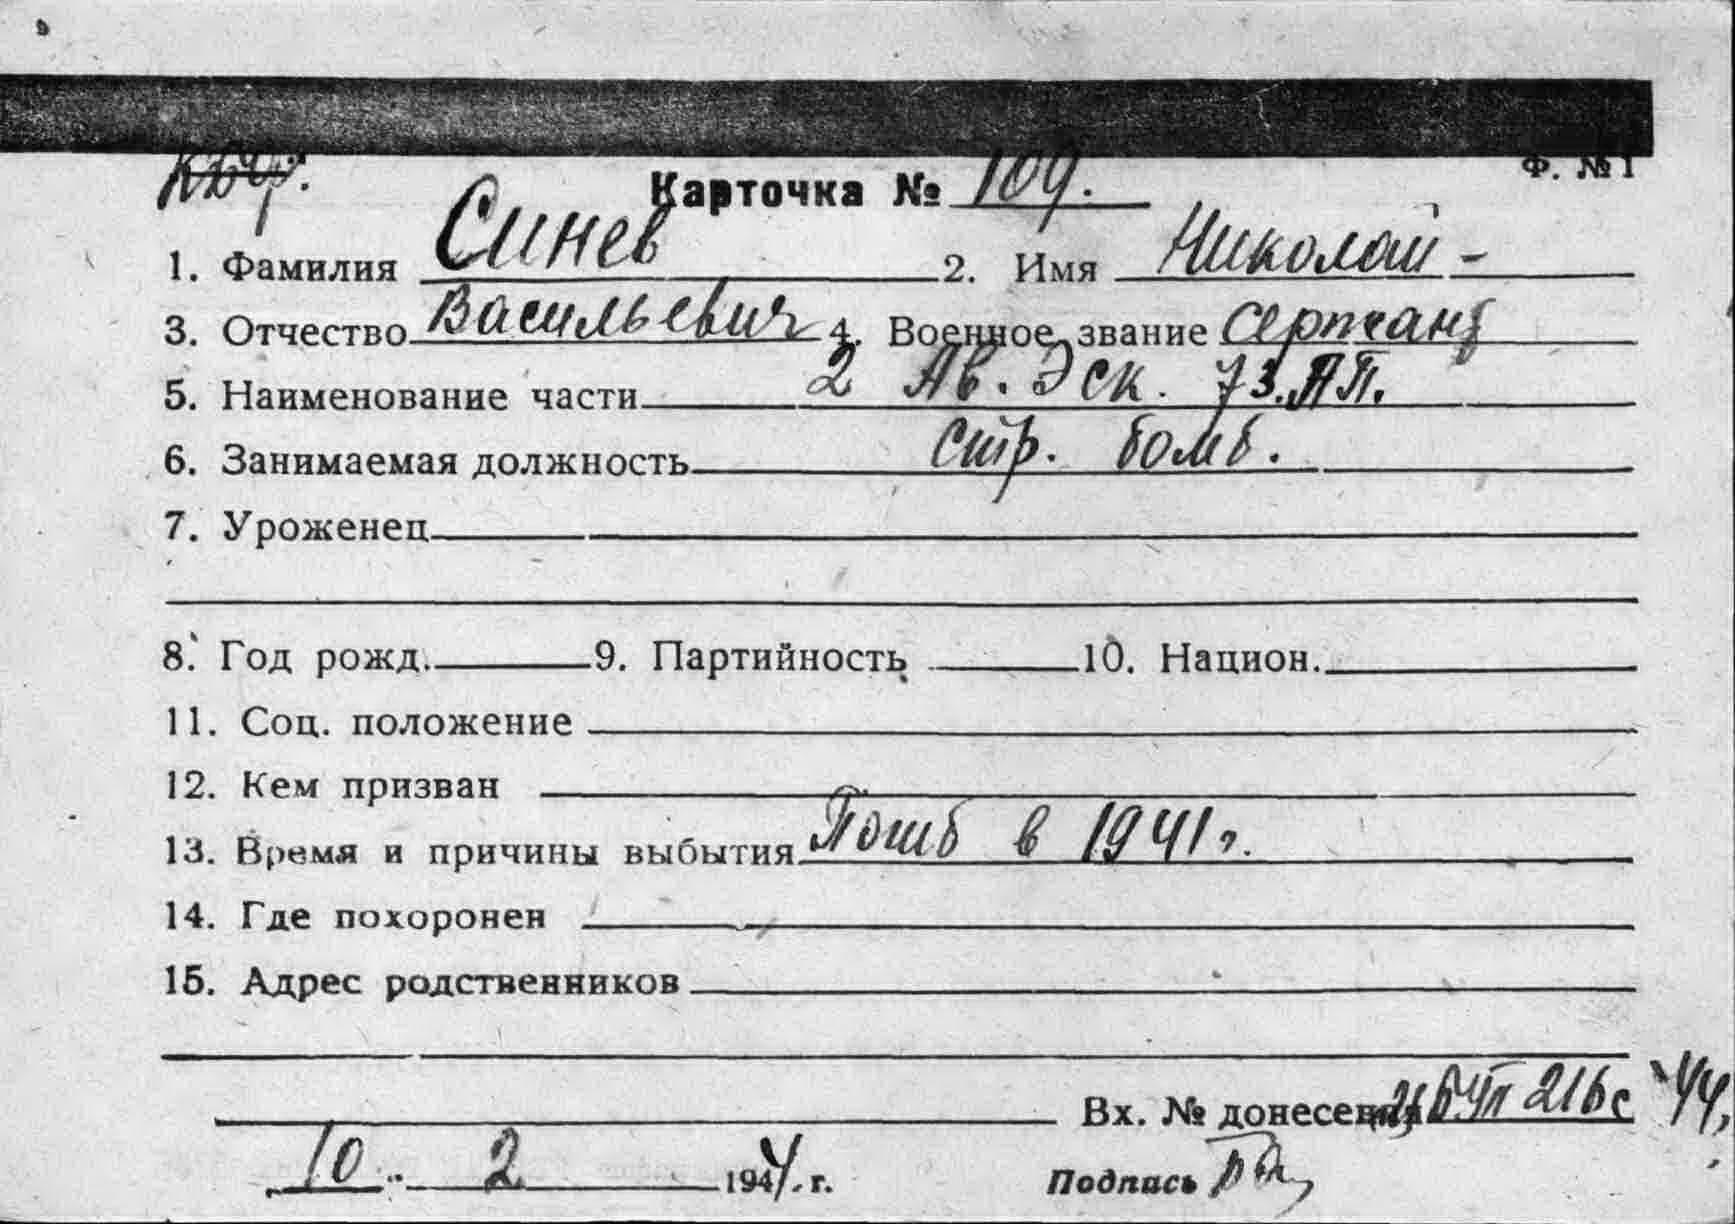 Ф. № 1
Карточка № 109.
1. Фамилия Синев 2. Имя Николай -
3. Отчество Васильевич 4. Военное звание сержант
5. Наименование части 2 Ав. Эск. 73.АП.
6. Занимаемая должность стр. бомб.
7. Уроженец
8. Год рожд. 9. Партийность 10. Национ.
11. Соц. положение
12. Кем призван
13. Время и причины выбытия Погиб в 1941 г.
14. Где похоронен
15. Адрес родственников
Вх. № донесения 216с 44
10 2 1944 г. Подпись